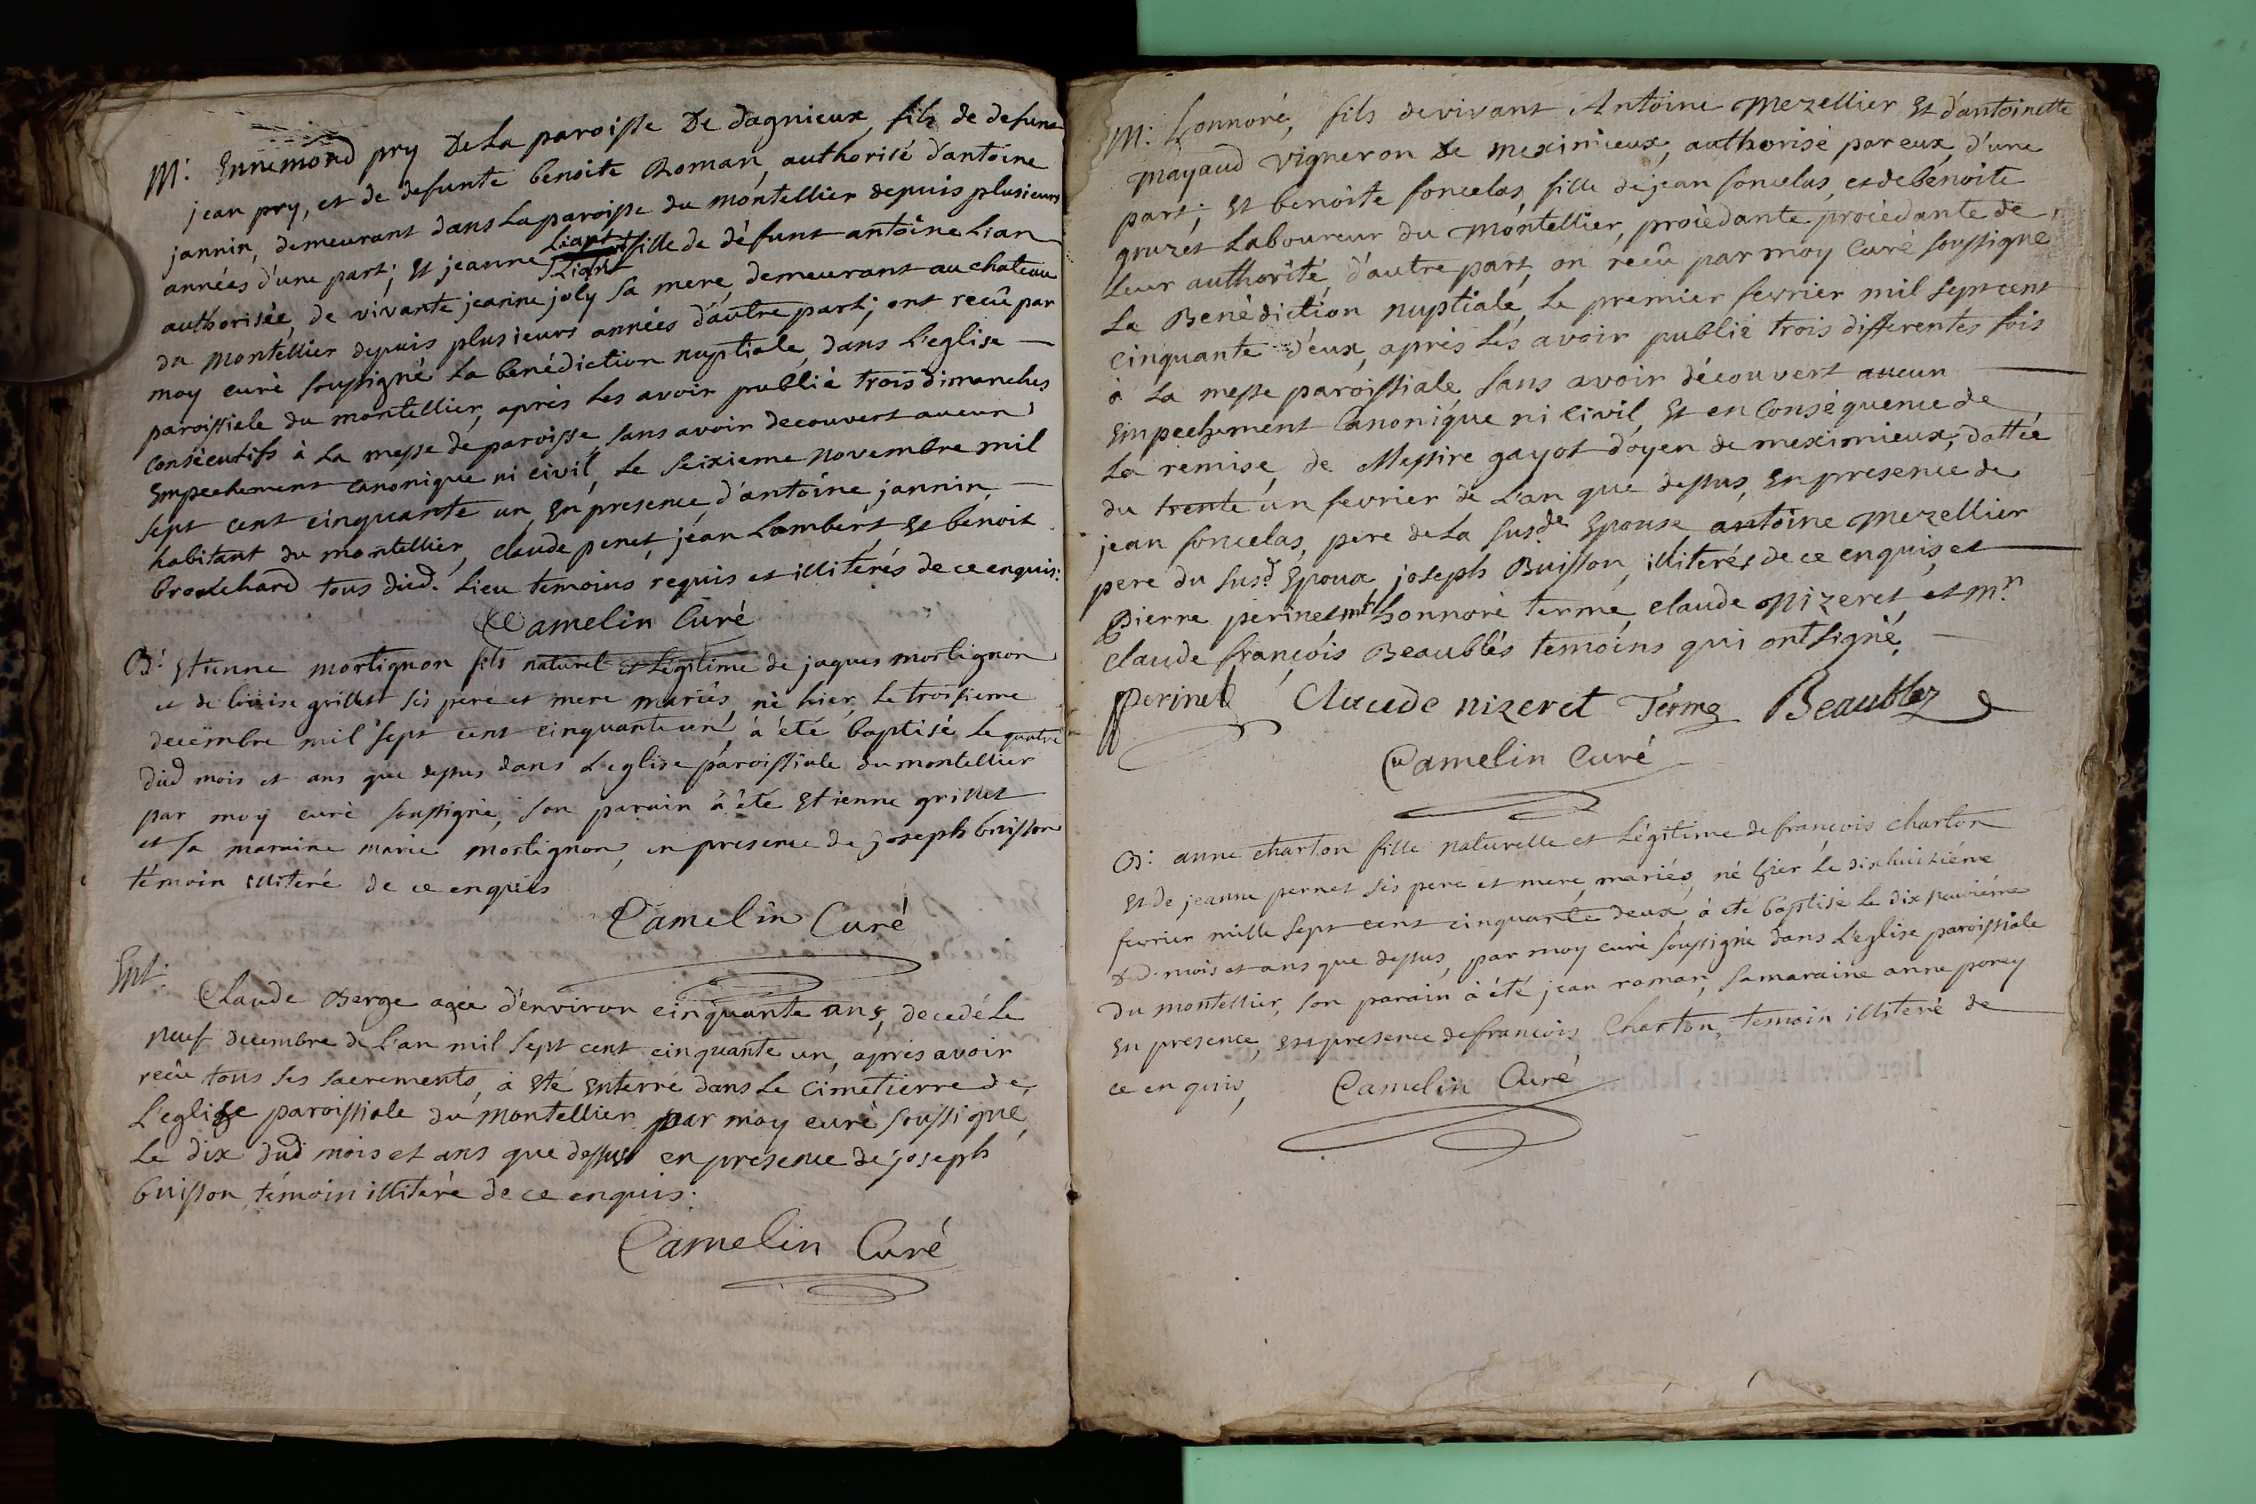 M: Ennemond pry De La paroisse De dagnieux, fils de defunt
jean pry, et de defunte benoite Roman, authorisé d'antoine
jannin, demeurant dans La paroisse du montellier depuis plusieurs
années d'une part; Et jeanne Liant fille de défunt antoine Lian
authorisée, de vivante jeanne joly sa mere, demeurant au chateau
du montellier depuis plusieurs années d'autre part; ont recû par
moy curé soussigné La bénédiction nuptiale, dans L'eglise
paroissiele du montellier, aprés Les avoir publié trois dimanches
consécutifs à La messe de paroisse sans avoir decouvert aucun
Empechement canonique ni civil, Le seixieme novembre mil
sept cent cinquante un, En presence d'antoine jannin,
habitant du montellier, Claude penet, jean Lambert, Et benoit
brouchard tous dud. Lieu temoins requis et illiterés de ce enquis:
Camelin Curé
B: Etienne mortignon fils naturel et Légitime de jaques mortignon
et de Louise grillet sés pere et mere mariés, né hier, Le troisieme
decëmbre mil sept cent cinquante un, à été baptisé Le quatre
dud mois et ans que dessus dans L'eglise paroissiale du montellier
par moy curé soussigné, son parain à été Etienne grillet
et sa maraine marie mortignon, en presence de joseph buisson
témoin illiteré de ce enquis
Camelin Curé
Ent:
Claude Berge agée d'environ cinquante ans, decedé Le
neuf decembre de L'an mil sept cent cinquante un, aprés avoir
recûe tous ses sacrements, à Eté Enterré dans Le Cimetierre de
L'eglise paroissiale du montellier par moy curé soussigné,
Le dix dud mois et ans que dessus en presence de joseph
buisson, témoin illiteré de ce enquis:
Camelin Curé
M: honnoré, fils de vivant Antoine Mezellier Et d'antoinette
mayaud vigneron De meximieux, authorisé par eux, d'une
part; Et benoite foncelas, fille de jean foncelas, et de benoite
gruzet Laboureur du montellier, procèdante procèdante de
Leur authorité, d'autre part, on recû par moy Curé soussigné
La Benédiction nuptiale, Le premier fevrier mil sept cent
cinquante d'eux, aprés Les avoir publié trois differentes fois
à La messe paroissiale, sans avoir découvert aucun
Empechement Canonique ni civil, Et en Conséquence de
La remise, de Messire gayot doyen de meximieux, dattée
du trente un fevrier de L'an que dessus, En presence de
jean foncelas, pere de La susde Epouse antoine Mezellier
pere du susd Epoux, joseph Buisson, illiterés de ce enquis, et
Pierre perinet, mr honnoré terme, claude Nizeret, et mr
claude françois Beaublés temoins qui ont signé,
Perinet Claude nizeret Térme Beaublez
Camelin Curé
B: anne charton fille naturelle et Légitime de francois charton
Et de jeanne pernet sés pere et mere, mariés, né hier Le dixhuitiéme
fevrier mille sept cent cinquante deux, à eté baptisé Le dix neuviéme
dud. mois et ans que dessus, par moy curé soussigné dans L'eglise paroissiale
Du montellier, son parain à été jean roman, sa maraine anne porcy
En presence, en presence de francois Charton, temoin illiteré de
ce enquis, Camelin Curé